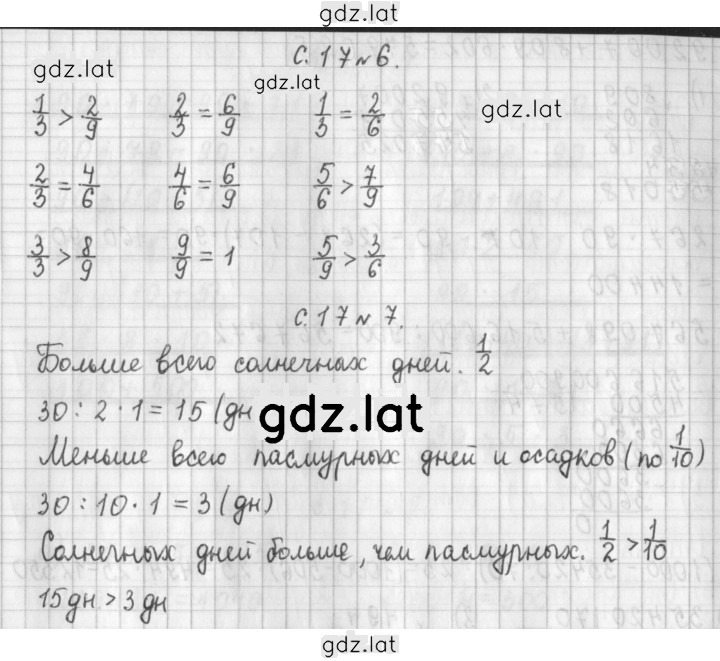 gdz.lat
с. 17 № 6.
gdz.lat
gdz.lat
gdz.lat
1/3 > 2/9   2/3 = 6/9   1/3 = 2/6
2/3 = 4/6   4/6 = 6/9   5/6 > 7/9
3/3 > 8/9   9/9 = 1   5/9 > 3/6
с. 17 № 7.
Больше всего солнечных дней. 1/2
30 : 2 · 1 = 15 (дн
gdz.lat
Меньше всего пасмурных дней и осадков (по 1/10)
30 : 10 · 1 = 3 (дн)
Солнечных дней больше, чем пасмурных. 1/2 > 1/10
15 дн > 3 дн
gdz.lat